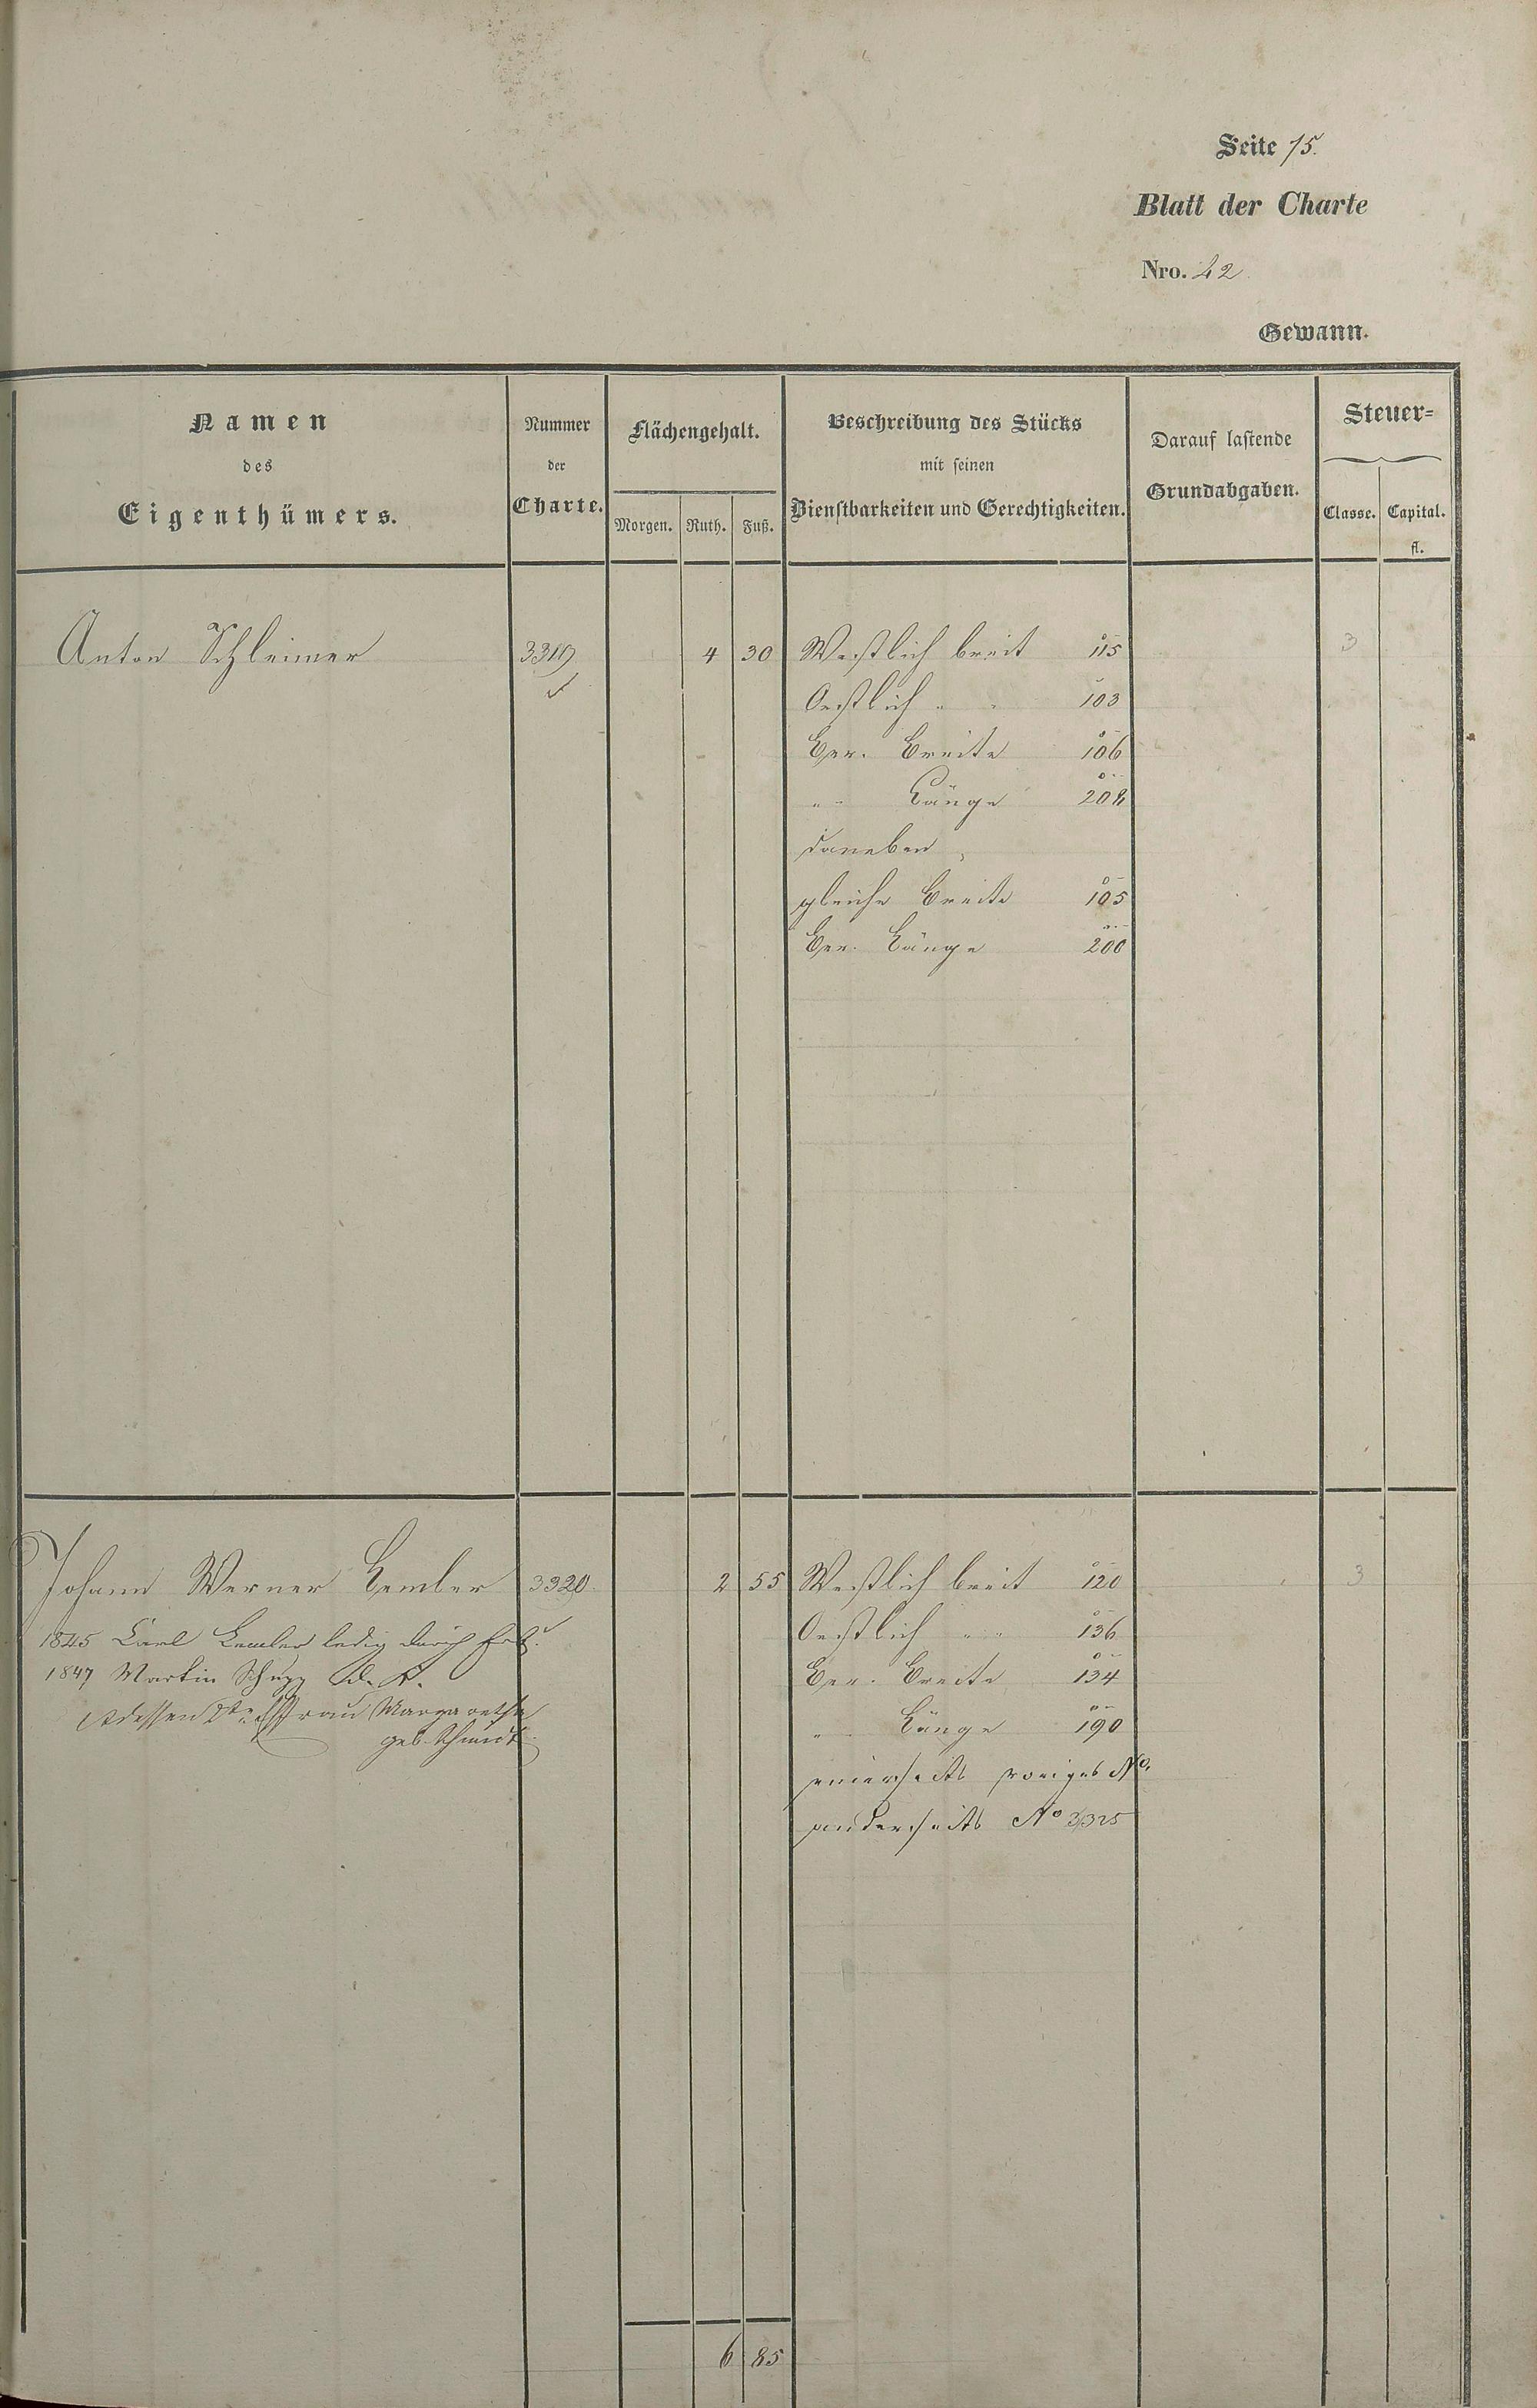 Seite 15.
Blatt der Charte
Nro. 42
Gewann.
Namen
des
Eigenthümers.
Nummer
der
Charte.
Flächengehalt.
Morgen. Ruth. Fuß.
Beschreibung des Stücks
mit seinen
Dienstbarkeiten und Gerechtigkeiten.
Darauf lastende
Grundabgaben.
Steuer-
Classe. Capital.
fl.
Anton Schleimer 3319 4 30 Westlich breit 115 3
Oestlich " " 103
Ger. Breite 106
" " Länge 208
daneben,
gleiche Breite 105
Ger. Länge 200
Johann Werner Lemler 3320 2 55 Westlich breit 120 3
1845 Carl Lemler ledig durch Erb. Oestlich " " 136
1847 Martin Schupp d. K. Ger. Breite 134
dessen Ehefrau Margarethe " Länge 190
geb. Schmidt
einerseits voriges No.
anderseits No 3325
6 85